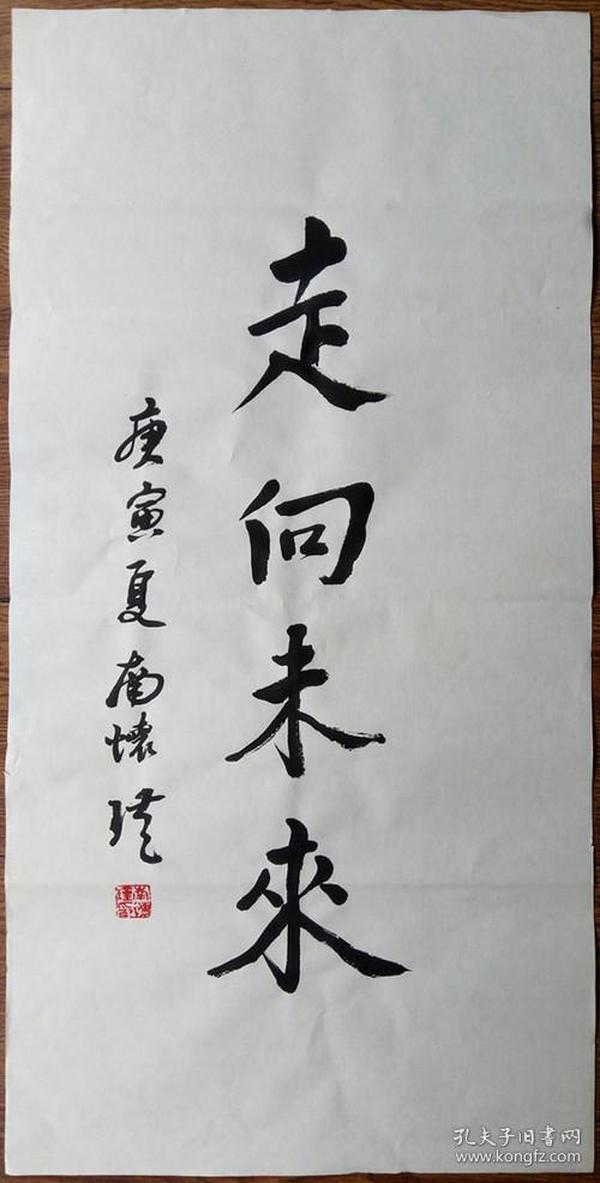 走向未來
庚寅夏 南懷瑾
南懷瑾印
孔夫子旧书网
www.kongfz.com